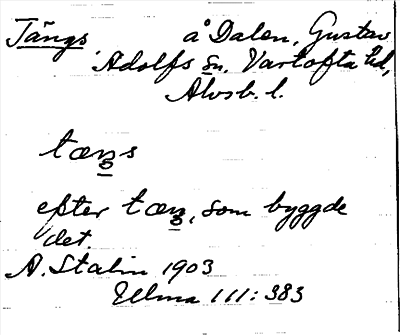 Tängs å Dalen, Gustav
Adolfs sn, Vartofta hd,
Älvsb. l.
tæŋs
efter tæŋ, som byggde
det.
A. Stalin 1903
Ulma 111:383